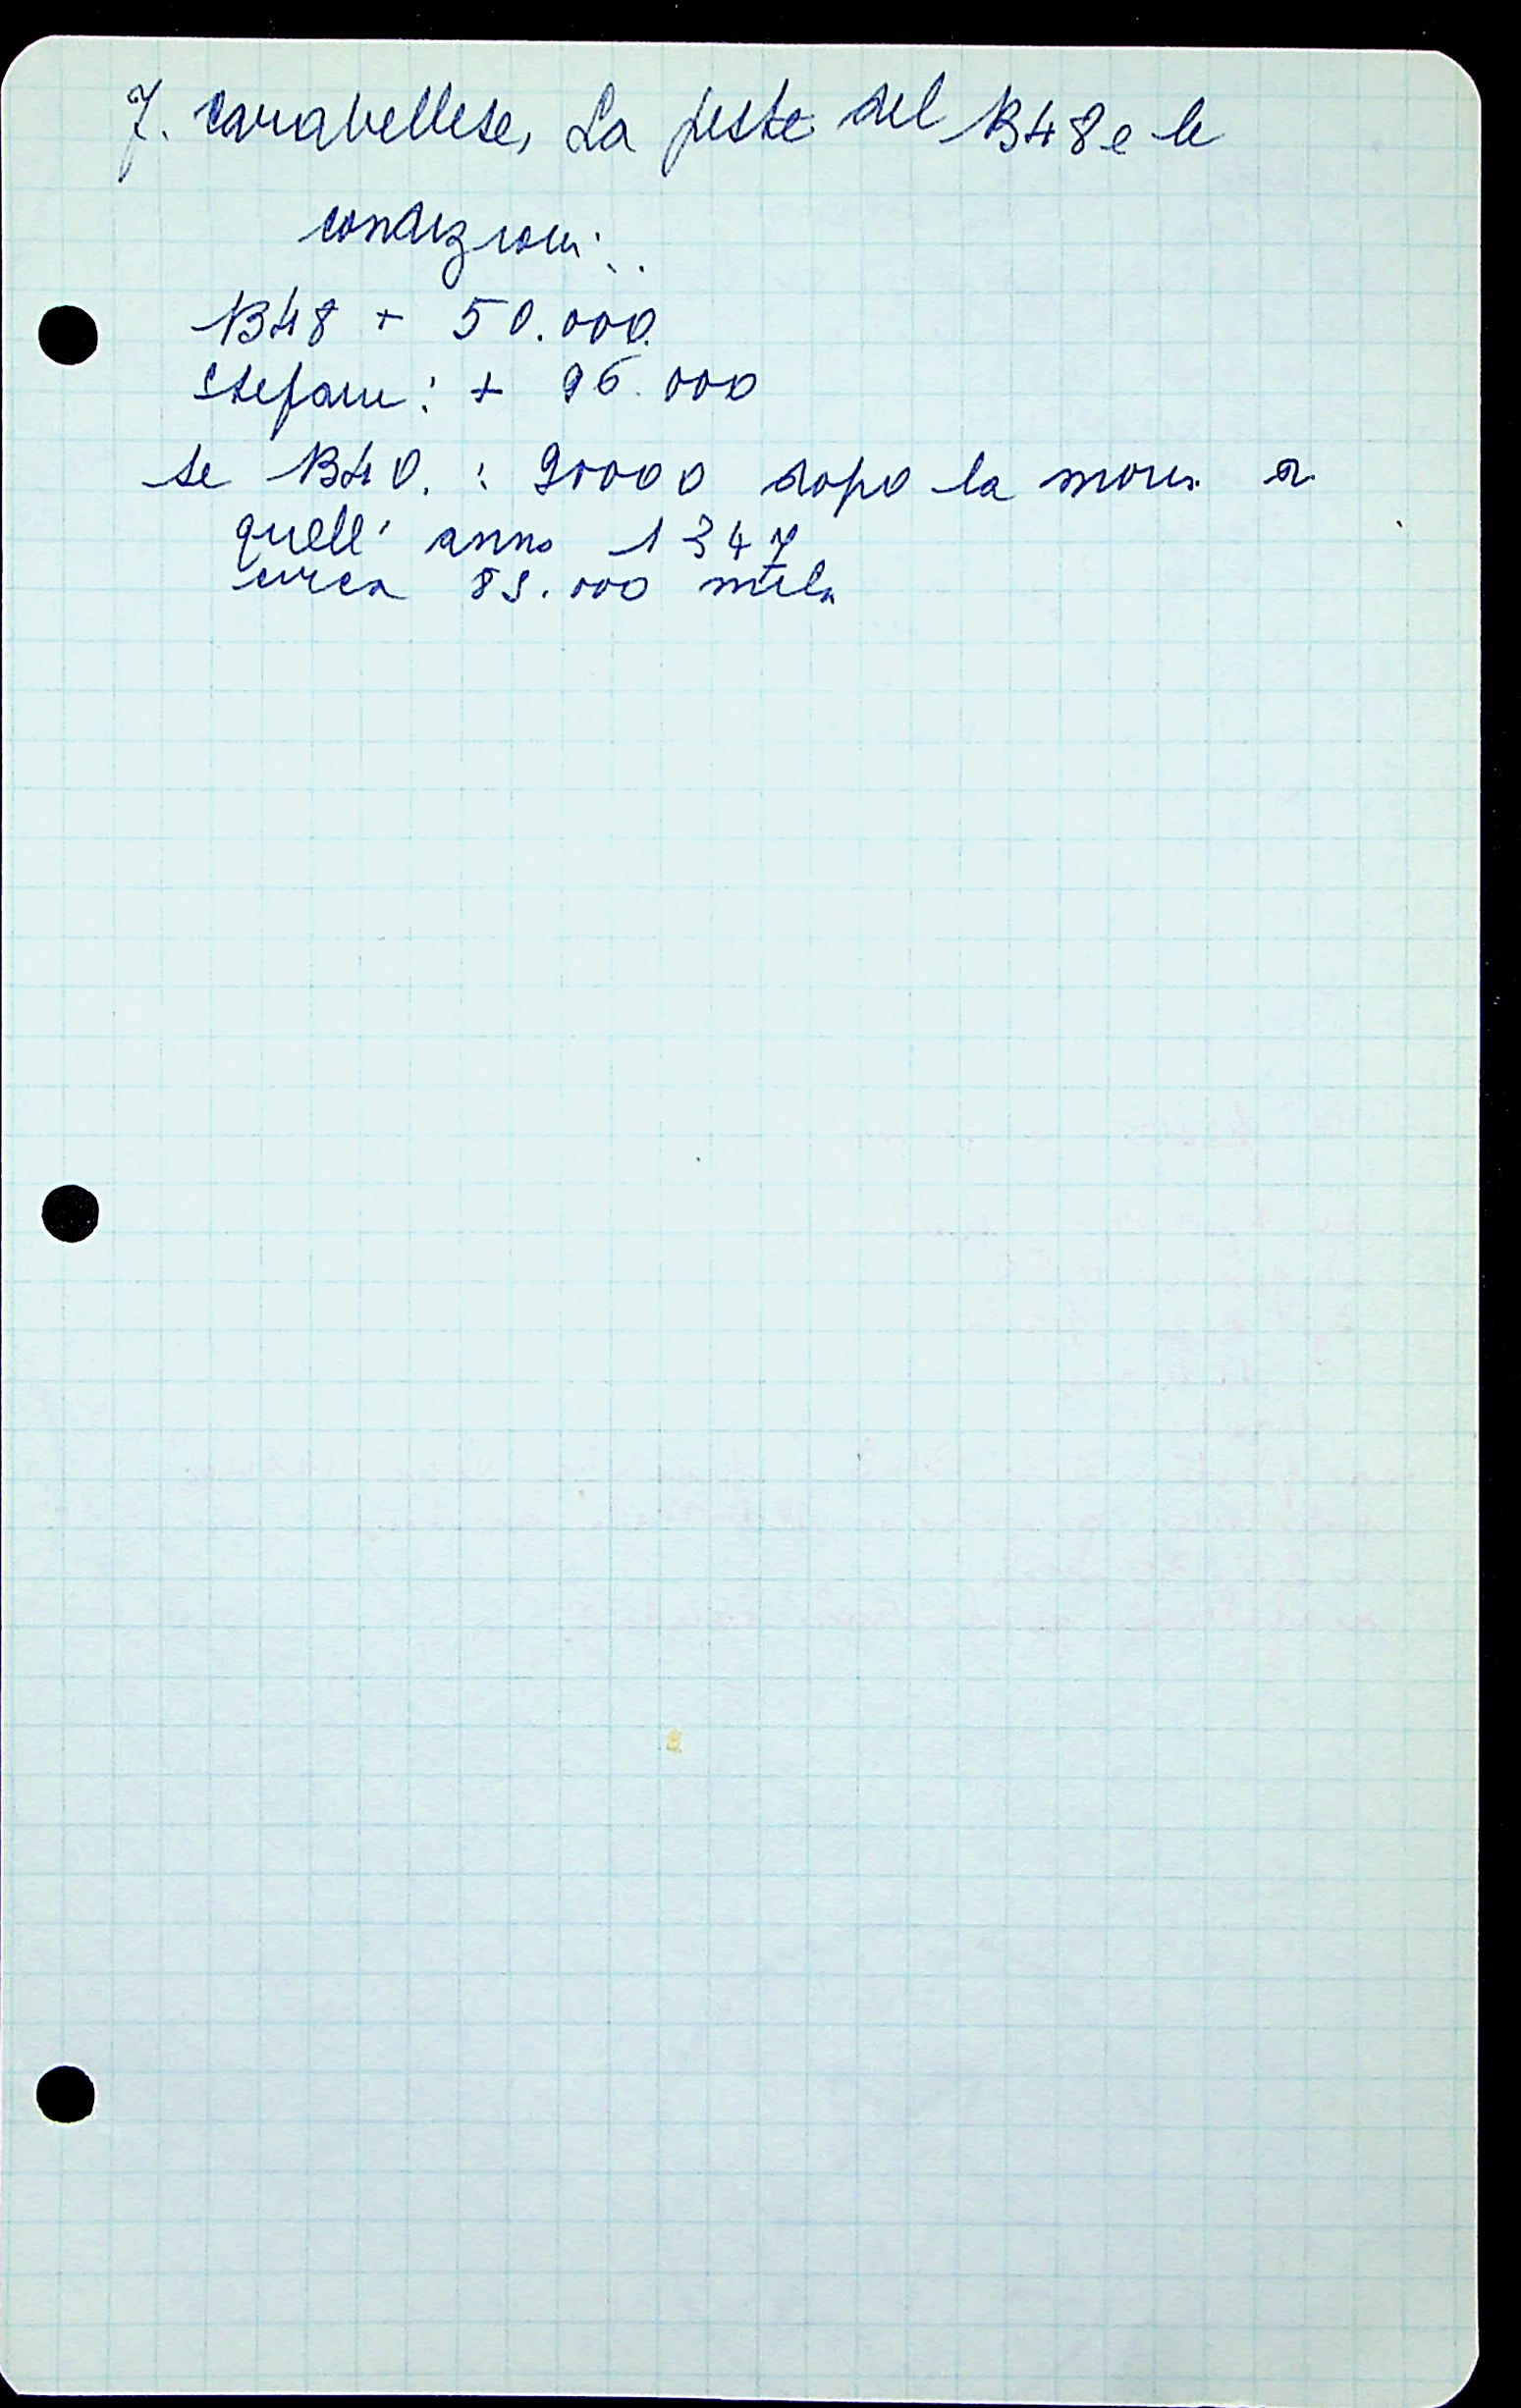 F. Carabellese, La peste del 1348 e le
condizioni...
1348 + 50.000.
Stefani: + 96.000
se 1340. : 90000 dopo la moria di
quell' anno 1347
circa 85.000 mila